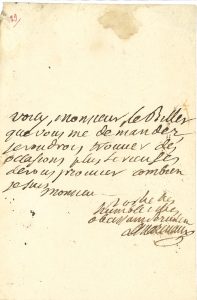 29
voicy, monsieur, le Billet
que vous me demandez
je voudrois trouver des
occasions plus serieuses
de vous prouver combien
je suis
monsieur
votre tres
humble et tres
obeissant serviteur